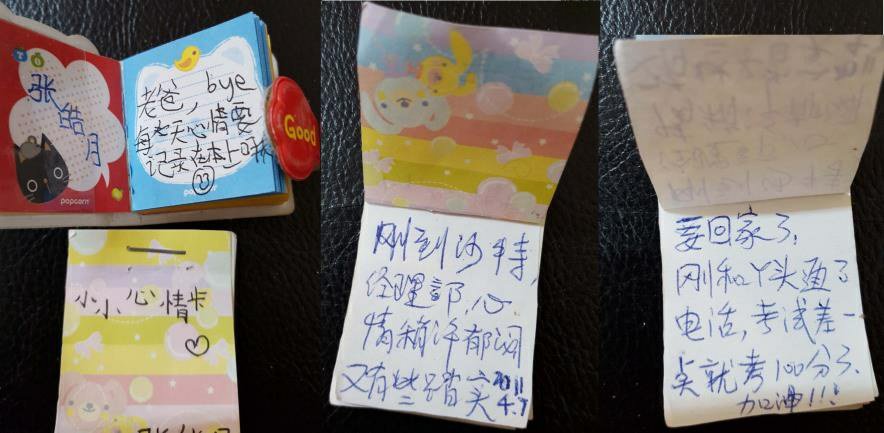 张皓月
popcorn
老爸，bye
每天心情要
记录在本上哦
popcorn
Good
小小心情卡
刚到沙特，
经理部，心
情稍许郁闷
又有些踏实
2011
4.7
要回家了，
刚和丫头通了
电话，考试差一
点就考100分了，
加油!!!